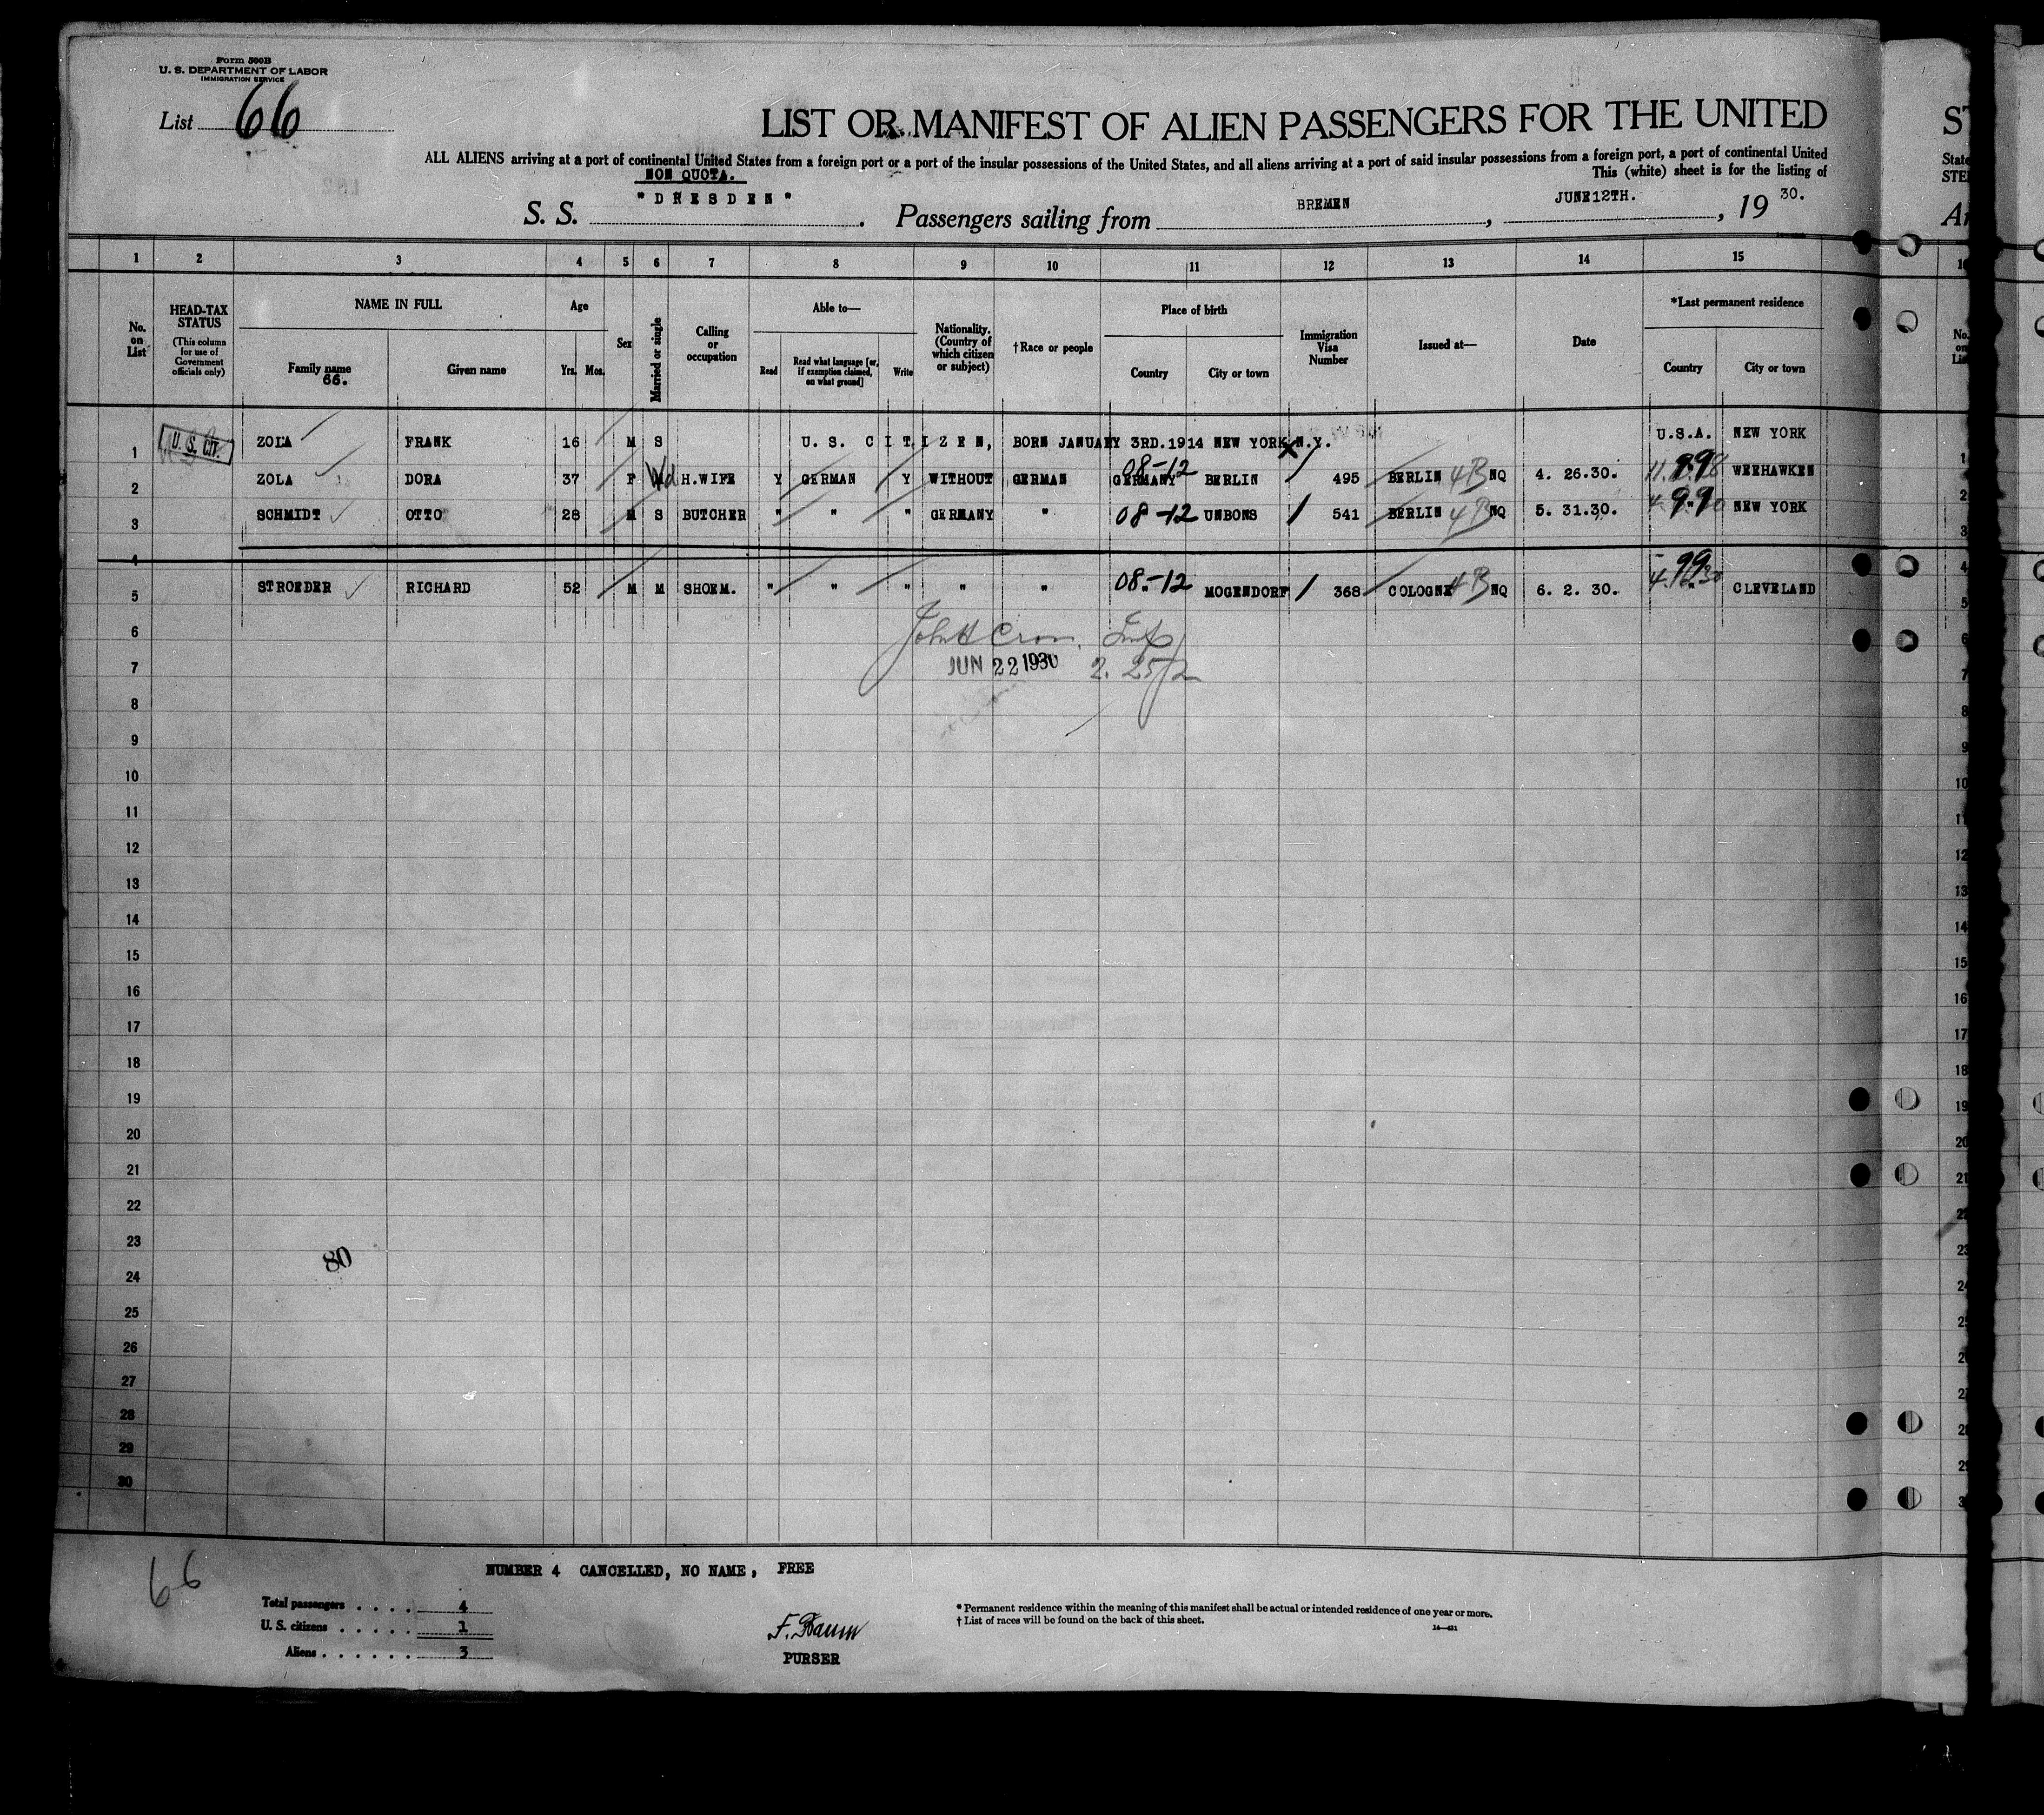 Form 500B
U. S. DEPARTMENT OF LABOR
IMMIGRATION SERVICE
List 66
LIST OR MANIFEST OF ALIEN PASSENGERS FOR THE UNITED
ALL ALIENS arriving at a port of continental United States from a foreign port or a port of the insular possessions of the United States, and all aliens arriving at a port of said insular possessions from a foreign port, a port of continental United
NON QUOTA.
This (white) sheet is for the listing of
S. S. "DRESDEN". Passengers sailing from BREMEN, JUNE12TH., 19 30.
1 2 3 4 5 6 7 8 9 10 11 12 13 14 15
No. on List
HEAD-TAX STATUS
(This column for use of Government officials only)
NAME IN FULL
Family name
66.
Given name
Age
Yrs. Mos.
Sex
Married or single
Calling or occupation
Able to—
Read
Read what language [or, if exemption claimed, on what ground]
Write
Nationality. (Country of which citizen or subject)
†Race or people
Place of birth
Country
City or town
Immigration Visa Number
Issued at—
Date
*Last permanent residence
Country
City or town
1 U. S. CIT. ZOLA FRANK 16 M S U. S. CITIZEN, BORN JANUARY 3RD.1914 NEW YORK N.Y. U.S.A. NEW YORK
2 ZOLA DORA 37 F Wd H.WIFE Y GERMAN Y WITHOUT GERMAN GERMANY 08-12 BERLIN 495 BERLIN 4B NQ 4. 26.30. 99 WEEHAWKEN
3 SCHMIDT OTTO 28 M S BUTCHER " " " GERMANY " 08-12 UNBONS 541 BERLIN 4B NQ 5. 31.30. 99 NEW YORK
4
5 STROEDER RICHARD 52 M M SHOEM. " " " " " 08-12 MOGENDORF 368 COLOGNE 4B NQ 6. 2. 30. 99 CLEVELAND
6
7 JUN 22 1930
8
9
10
11
12
13
14
15
16
17
18
19
20
21
22
23
80
24
25
26
27
28
29
30
66
NUMBER 4 CANCELLED, NO NAME, FREE
Total passengers . . . . 4
U. S. citizens . . . . . 1
Aliens . . . . . . 3
F. Baum
PURSER
* Permanent residence within the meaning of this manifest shall be actual or intended residence of one year or more.
† List of races will be found on the back of this sheet.